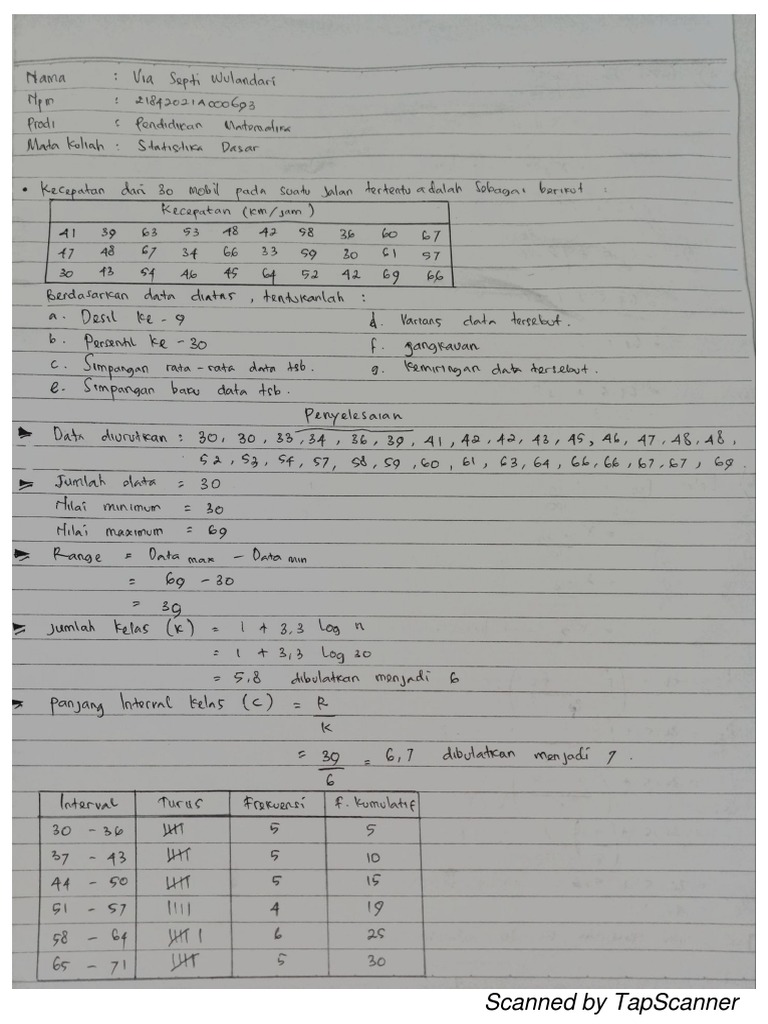 Nama : Via Septi Wulandari
Npm : 21842021A000693
Prodi : Pendidikan Matematika
Mata Koliah : Statistika Dasar
• Kecepatan dari 30 mobil pada suatu jalan tertentu adalah sebagai berikut :
Kecepatan (km/jam)
41 39 63 53 48 42 58 36 60 67
47 48 67 34 66 33 59 30 61 57
30 43 54 46 45 64 52 42 69 66
Berdasarkan data diatas, tentukanlah :
a. Desil ke - 9 d. Varians data tersebut.
b. Persentil ke - 30 f. jangkauan
c. Simpangan rata-rata data tsb. g. kemiringan data tersebut.
e. Simpangan baku data tsb.
Penyelesaian
Data diurutkan : 30, 30, 33, 34, 36, 39, 41, 42, 42, 43, 45, 46, 47, 48, 48,
52, 53, 54, 57, 58, 59, 60, 61, 63, 64, 66, 66, 67, 67, 69.
Jumlah data = 30
Nilai minimum = 30
Nilai maximum = 69
Range = Data max - Data min
= 69 - 30
= 39
Jumlah kelas (K) = 1 + 3,3 log n
= 1 + 3,3 log 30
= 5,8 dibulatkan menjadi 6
Panjang Interval kelas (C) = R
K
= 39 = 6,7 dibulatkan menjadi 7.
6
Interval Turus Frekuensi F. Kumulatif
30 - 36 5 5
37 - 43 5 10
44 - 50 5 15
51 - 57 |||| 4 19
58 - 64 6 25
65 - 71 5 30
Scanned by TapScanner